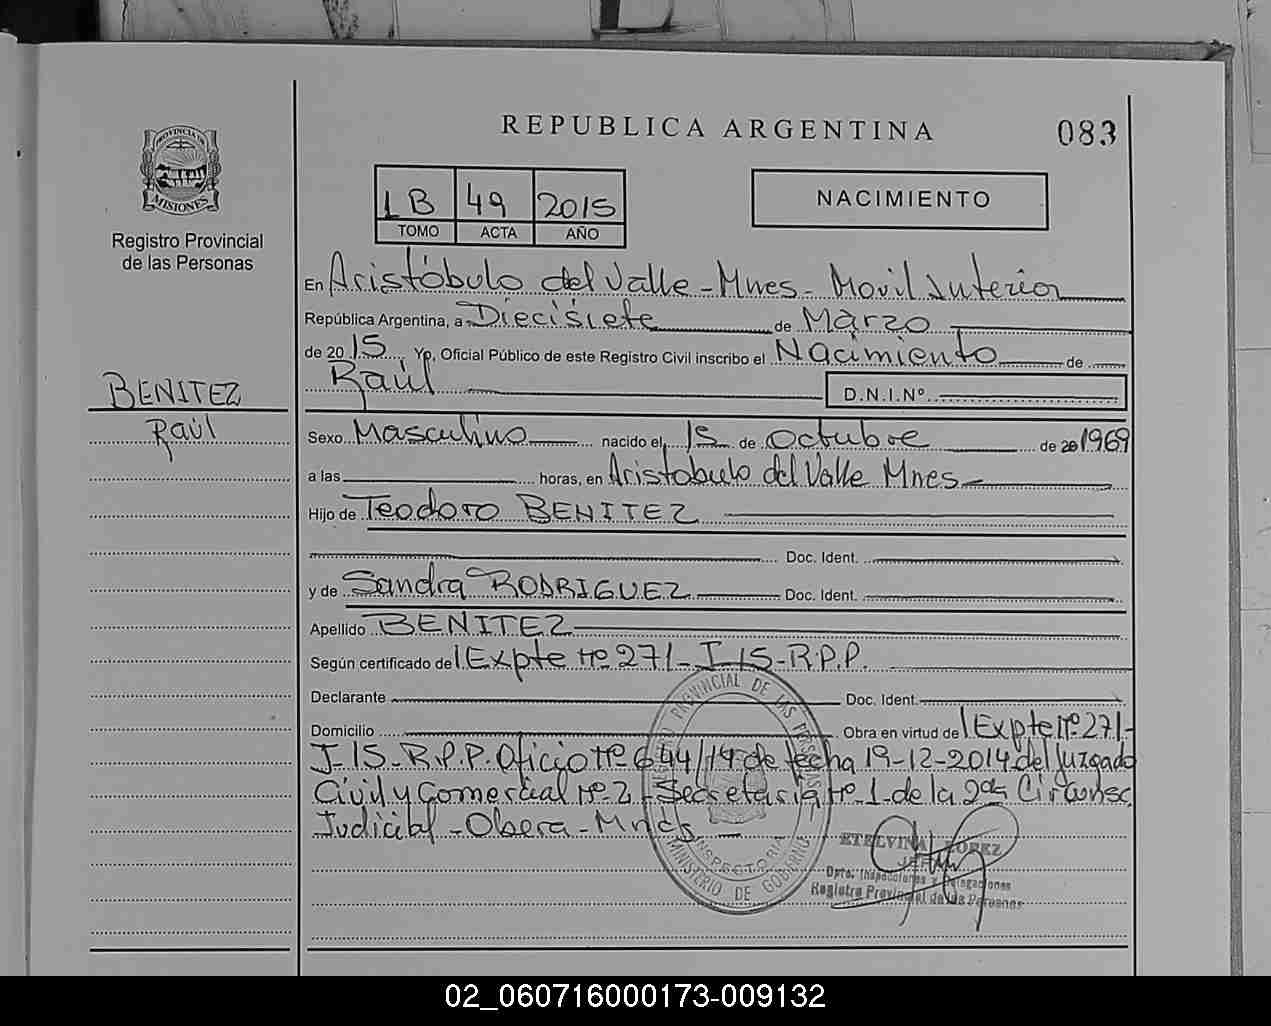 REPUBLICA ARGENTINA
083
PROVINCIA DE
MISIONES
Registro Provincial
de las Personas
1B 49 2015
TOMO ACTA AÑO
NACIMIENTO
En Aristóbulo del Valle - Mnes - Movil Interior
República Argentina, a Diecisiete de Marzo
de 2015 Yo, Oficial Público de este Registro Civil inscribo el Nacimiento de
Raúl
D.N.I.Nº
BENITEZ
Raúl
Sexo Masculino nacido el 15 de Octubre de 20 1969
a las horas, en Aristobulo del Valle Mnes
Hijo de Teodoro BENITEZ
Doc. Ident.
y de Sandra RODRIGUEZ Doc. Ident.
Apellido BENITEZ
Según certificado de Expte nº 271-I-15-R.P.P.
Declarante Doc. Ident.
Domicilio Obra en virtud de Expte nº 271-
I-15-R.P.P. Oficio nº 644/14 de fecha 19-12-2014 del Juzgado
Civil y Comercial nº 2 - Secretaria nº 1 de la 2da Circunsc.
Judicial - Obera - Mnes
REGISTRO PROVINCIAL DE LAS PERSONAS
INSPECTORIA
MINISTERIO DE GOBIERNO
ETELVINA LOPEZ
JEFE
Dpto. Inspecciones y Delegaciones
Registro Provincial de las Personas
02_060716000173-009132